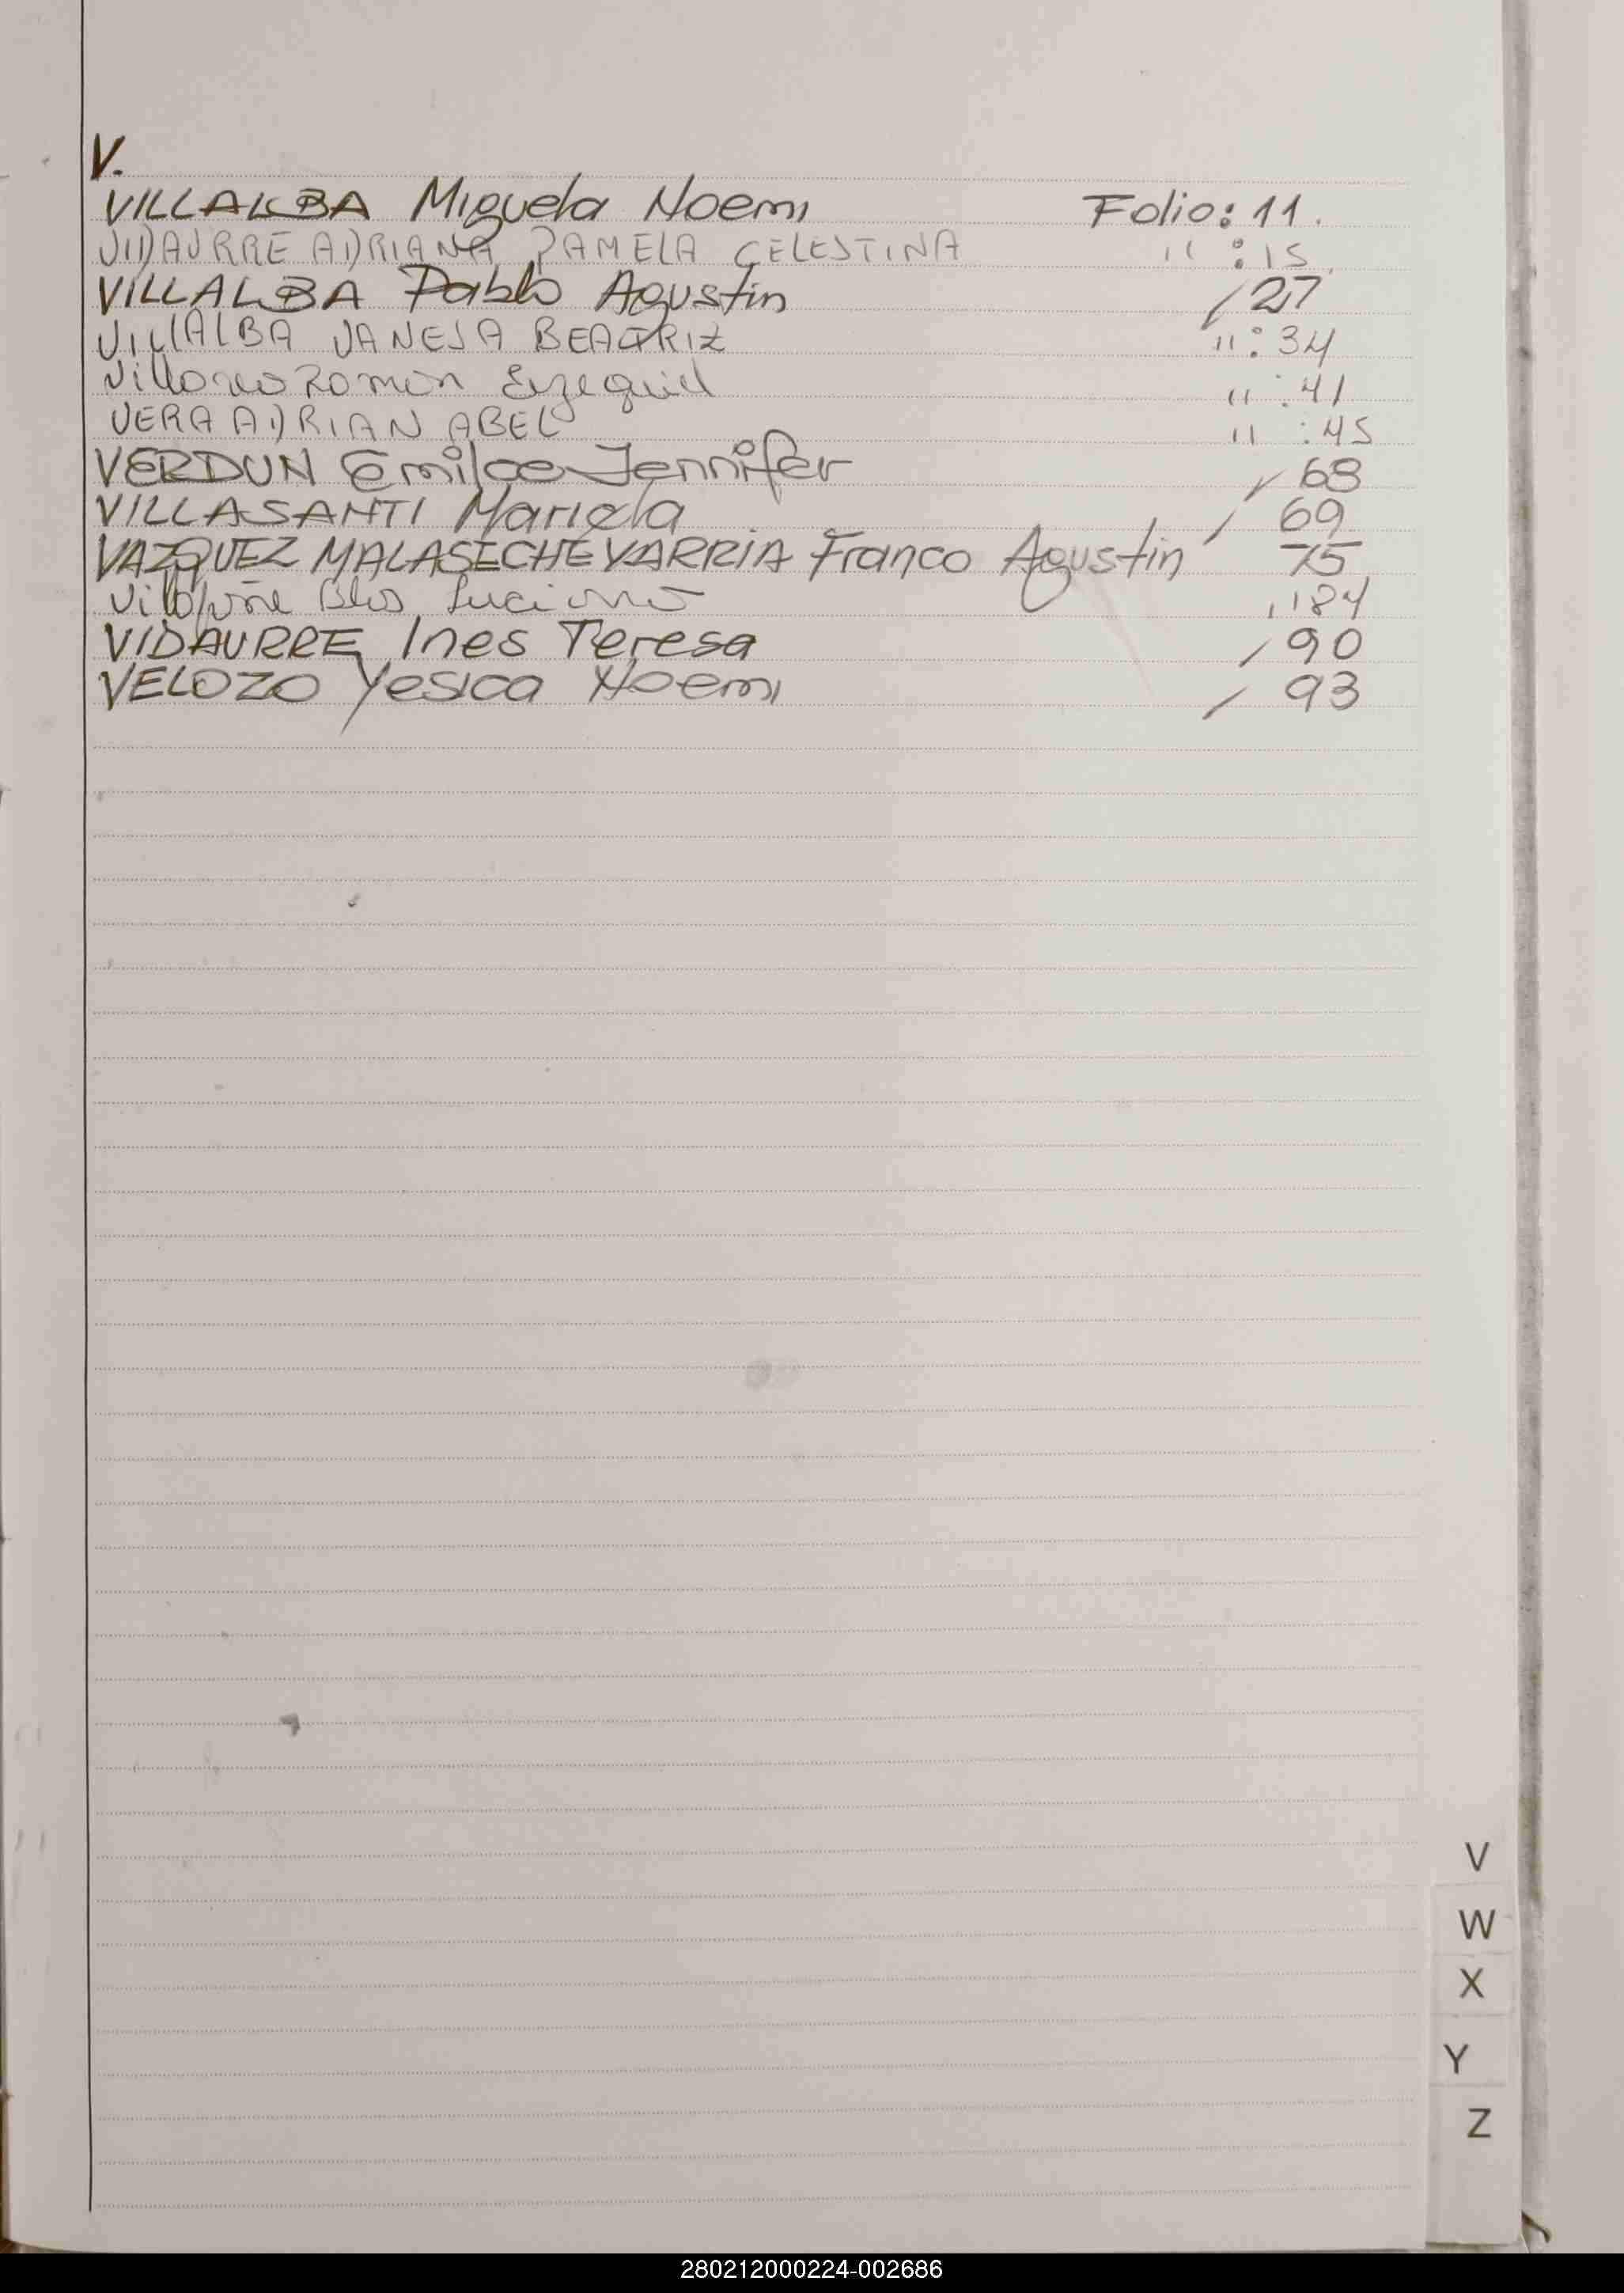 V.
VILLALBA Miguela Noemi Folio: 11.
VIDAURRE ADRIANA PAMELA CELESTINA " : 15
VILLALBA Pablo Agustin / 27
VILLALBA VANESA BEATRIZ " : 34
Ramón Ezequiel " : 41
VERA ADRIAN ABEL " : 45
VERDUN Emilce Jennifer / 68
VILLASANTI Mariela / 69
VAZQUEZ MALASECHEVARRIA Franco Agustin / 75
Blas Luciano 84
VIDAURRE Ines Teresa / 90
VELOZO Yesica Noemi / 93
V
W
X
Y
Z
280212000224-002686